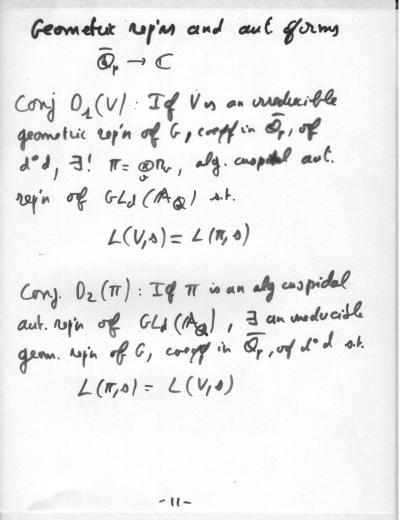 Geometric rep'ns and aut. forms
Q̄_p → ℂ
Conj D_1(V) : If V is an irreducible
geometric rep'n of G, coeff in Q̄_p, of
d°d, ∃! π = ⊗_v π_v, alg. cuspidal aut.
rep'n of GL_d(𝔸_ℚ) s.t.
L(V,s) = L(π,s)
Conj. D_2(π) : If π is an alg cuspidal
aut. rep'n of GL_d(𝔸_ℚ), ∃ an irreducible
geom. rep'n of G, coeff in Q̄_p, of d°d s.t.
L(π,s) = L(V,s)
-11-